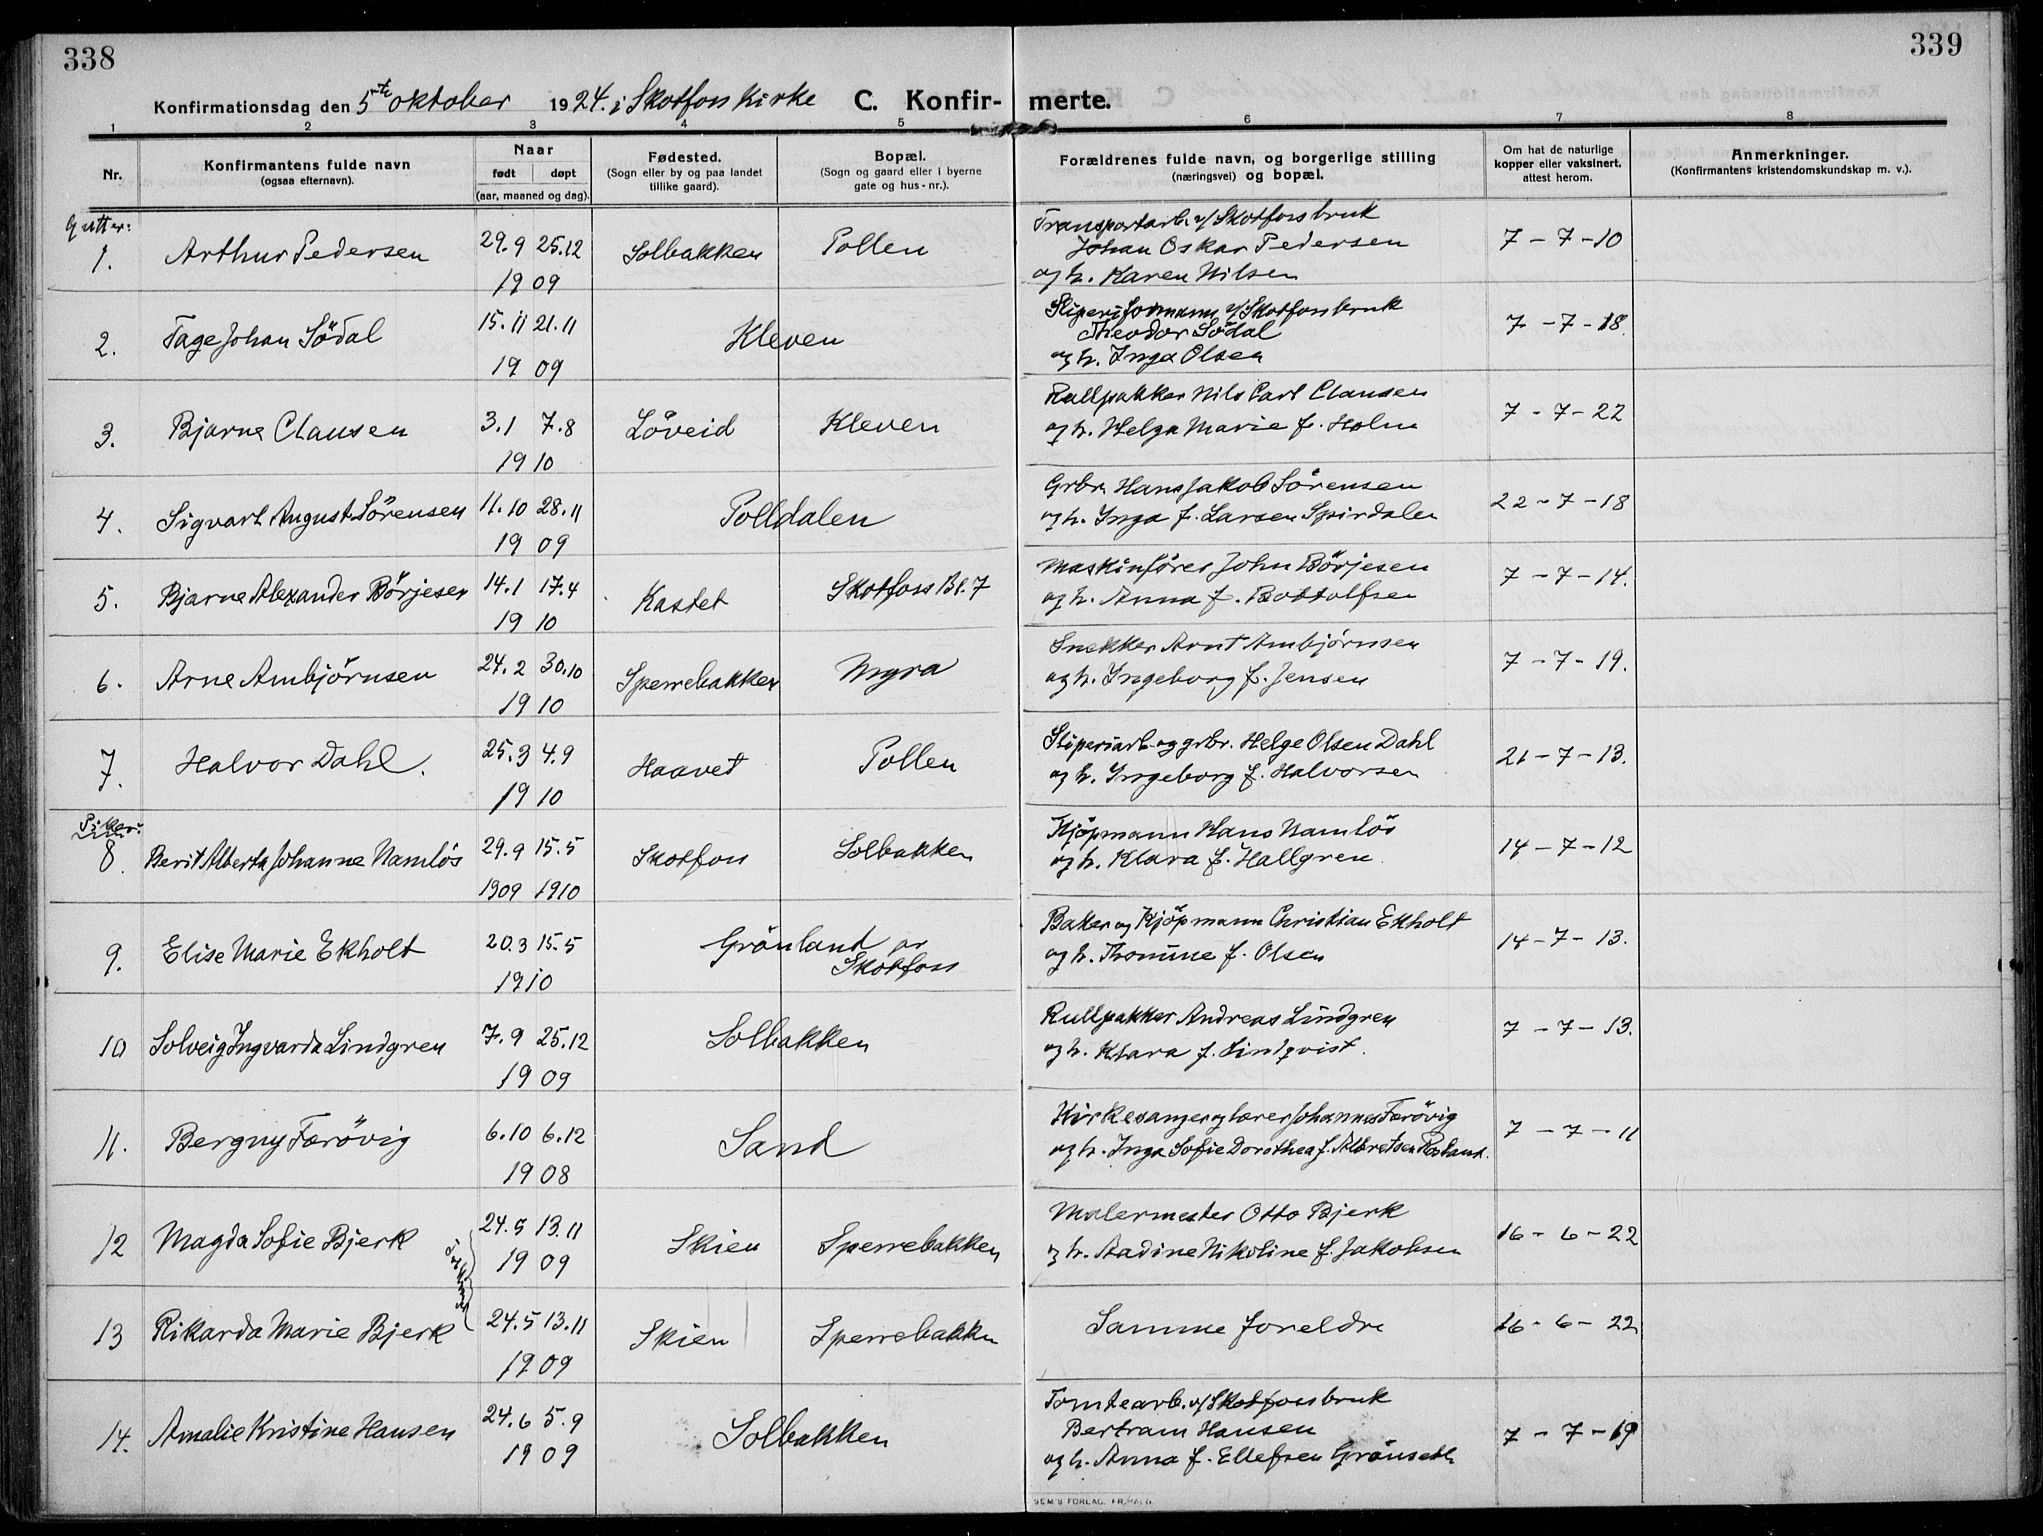 338
339
Konfirmationsdag den 5te oktober 1924. i Skotfoss Kirke C. Konfirmerte.
1 2 3 4 5 6 7 8
Nr.
Konfirmantens fulde navn
(ogsaa efternavn).
Naar
født døpt
(aar, maaned og dag).
Fødested.
(Sogn eller by og paa landet
tillike gaard).
Bopæl.
(Sogn og gaard eller i byerne
gate og hus-nr.).
Forældrenes fulde navn, og borgerlige stilling
(næringsvei) og bopæl.
Om hat de naturlige
kopper eller vaksinert,
attest herom.
Anmerkninger.
(Konfirmantens kristendomskundskap m. v.).
Gutter:
1. Arthur Pedersen 29.9 25.12 1909 Solbakken Pollen
Transportarb. v/ Skotfoss bruk
Johan Oskar Pedersen
og h. Karen Nilsen
7-7-10
2. Tage Johan Södal 15.11 21.11 1909 Kleven
Sliperiformann v/ Skotfoss bruk
Theodor Södal
og h. Inga Olsen
7-7-18.
3. Bjarne Clausen 3.1 7.8 1910 Löveid Kleven
Rullpakker Nils Carl Clausen
og h. Helga Marie f. Holm
7-7-22
4. Sigvart August Sörensen 11.10 28.11 1909 Polldalen
Grbr. Hans Jakob Sörensen
og h. Inga f. Larsen Spirdalen
22-7-18
5. Bjarne Alexander Börjesen 14.1 17.4 1910 Kastet Skotfoss Bl. 7
Maskinförer John Börjesen
og h. Anna f. Bottolfsen
7-7-14.
6. Arne Ambjörnsen 24.2 30.10 1910 Sperrebakken Myra
Snekker Arnt Ambjörnsen
og h. Ingeborg f. Jensen
7-7-19.
7. Halvor Dahl. 25.3 4.9 1910 Haavet Pollen
Sliperiarb. og grbr. Helge Olsen Dahl
og h. Ingeborg f. Halvorsen
21-7-13.
Piker:
8. Berit Alberta Johanne Namlös 29.9 15.5 1909 1910 Skotfoss Solbakken
Kjöpmann Hans Namlös
og h. Klara f. Hallgren.
14-7-12
9. Elise Marie Ekholt 20.3 15.5 1910 Grönland pr
Skotfoss
Baker og Kjöpmann Christian Ekholt
og h. Thomine f. Olsen
14-7-13.
10 Solveig Ingvarda Lindgren 7.9 25.12 1909 Solbakken
Rullpakker Andreas Lindgren
og h. Klara f. Lindqvist.
7-7-13.
11. Bergny Færövig 6.10 6.12 1908 Sand
Kirkesanger og lærer Johannes Færövig
og h. Inga Sofie Dorothea f. Albretsen
7-7-11
12 Magda Sofie Bjerk 24.5 13.11 1909 Skien Sperrebakken
Malermester Otto Bjerk
og h. Aadine Nikoline f. Jakobsen
16-6-22
13 Rikarda Marie Bjerk 24.5 13.11 1909 Skien Sperrebakken
Samme foreldre
16-6-22
14. Amalie Kristine Hansen 24.6 5.9 1909 Solbakken
Tomtearb. v/ Skotfoss bruk
Bertram Hansen
og h. Anna f. Ellefsen Grönseth
7-7-19
SEM'S FORLAG, FR.HALD.